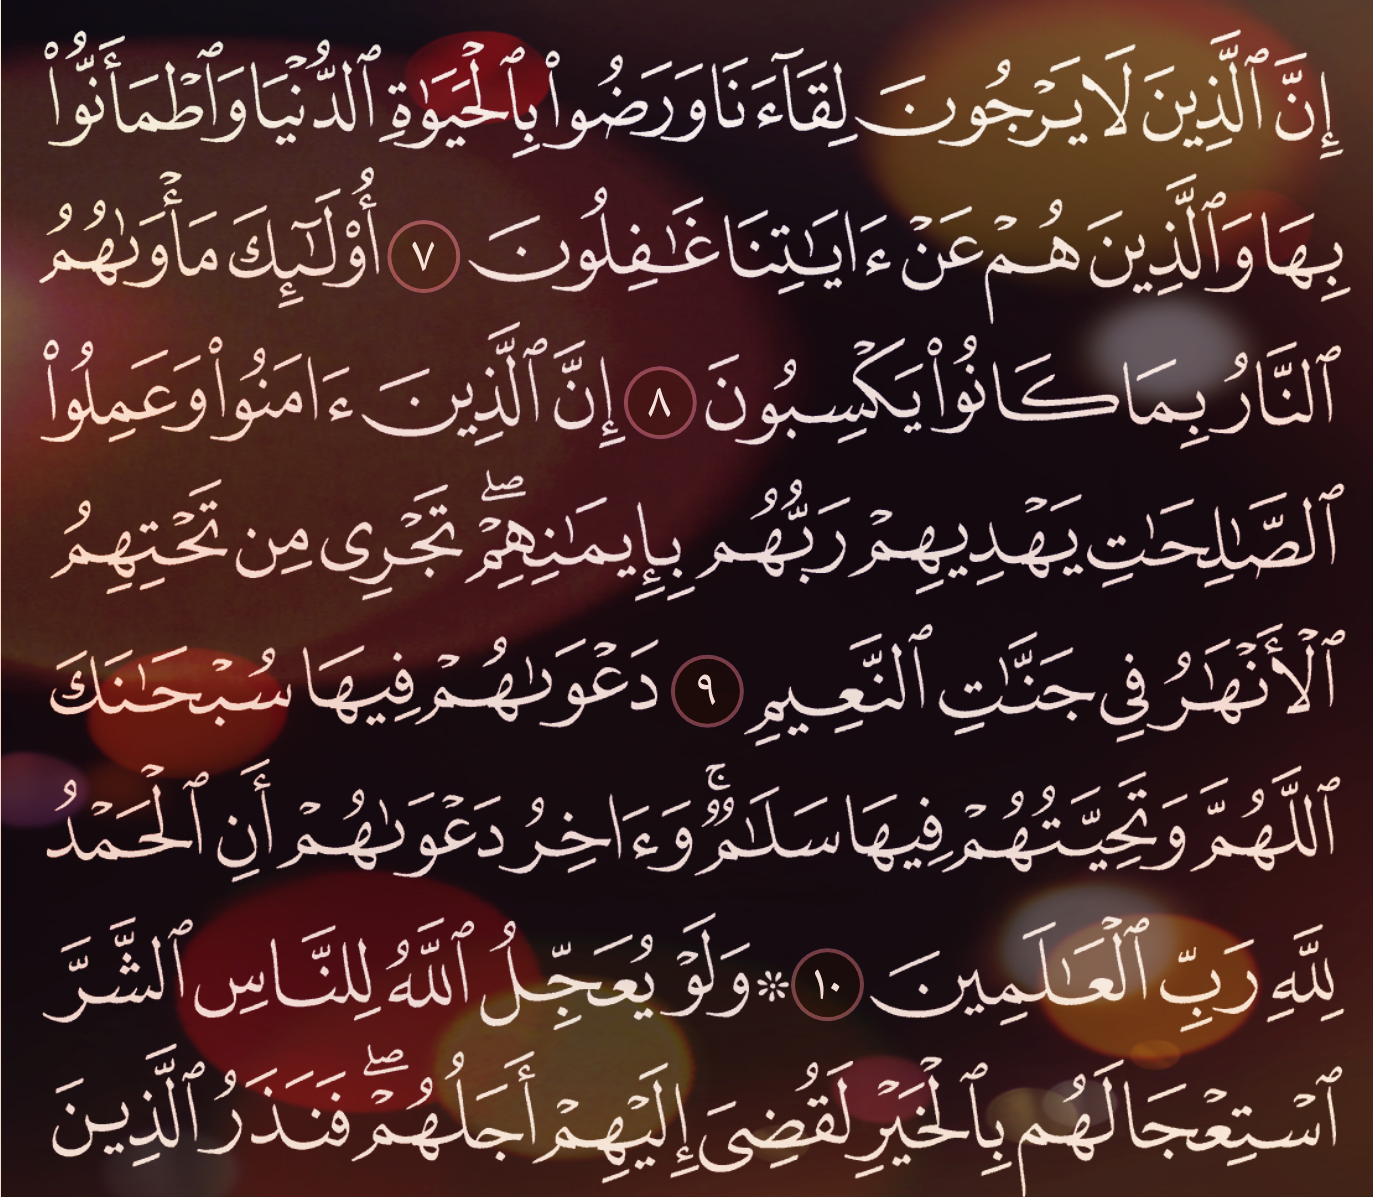 إِنَّ ٱلَّذِينَ لَا يَرْجُونَ لِقَآءَنَا وَرَضُوا۟ بِٱلْحَيَوٰةِ ٱلدُّنْيَا وَٱطْمَأَنُّوا۟
بِهَا وَٱلَّذِينَ هُمْ عَنْ ءَايَـٰتِنَا غَـٰفِلُونَ ٧ أُو۟لَـٰٓئِكَ مَأْوَىٰهُمُ
ٱلنَّارُ بِمَا كَانُوا۟ يَكْسِبُونَ ٨ إِنَّ ٱلَّذِينَ ءَامَنُوا۟ وَعَمِلُوا۟
ٱلصَّـٰلِحَـٰتِ يَهْدِيهِمْ رَبُّهُم بِإِيمَـٰنِهِمْ ۖ تَجْرِى مِن تَحْتِهِمُ
ٱلْأَنْهَـٰرُ فِى جَنَّـٰتِ ٱلنَّعِيمِ ٩ دَعْوَىٰهُمْ فِيهَا سُبْحَـٰنَكَ
ٱللَّهُمَّ وَتَحِيَّتُهُمْ فِيهَا سَلَـٰمٌ ۚ وَءَاخِرُ دَعْوَىٰهُمْ أَنِ ٱلْحَمْدُ
لِلَّهِ رَبِّ ٱلْعَـٰلَمِينَ ١٠ ۞ وَلَوْ يُعَجِّلُ ٱللَّهُ لِلنَّاسِ ٱلشَّرَّ
ٱسْتِعْجَالَهُم بِٱلْخَيْرِ لَقُضِىَ إِلَيْهِمْ أَجَلُهُمْ ۖ فَنَذَرُ ٱلَّذِينَ